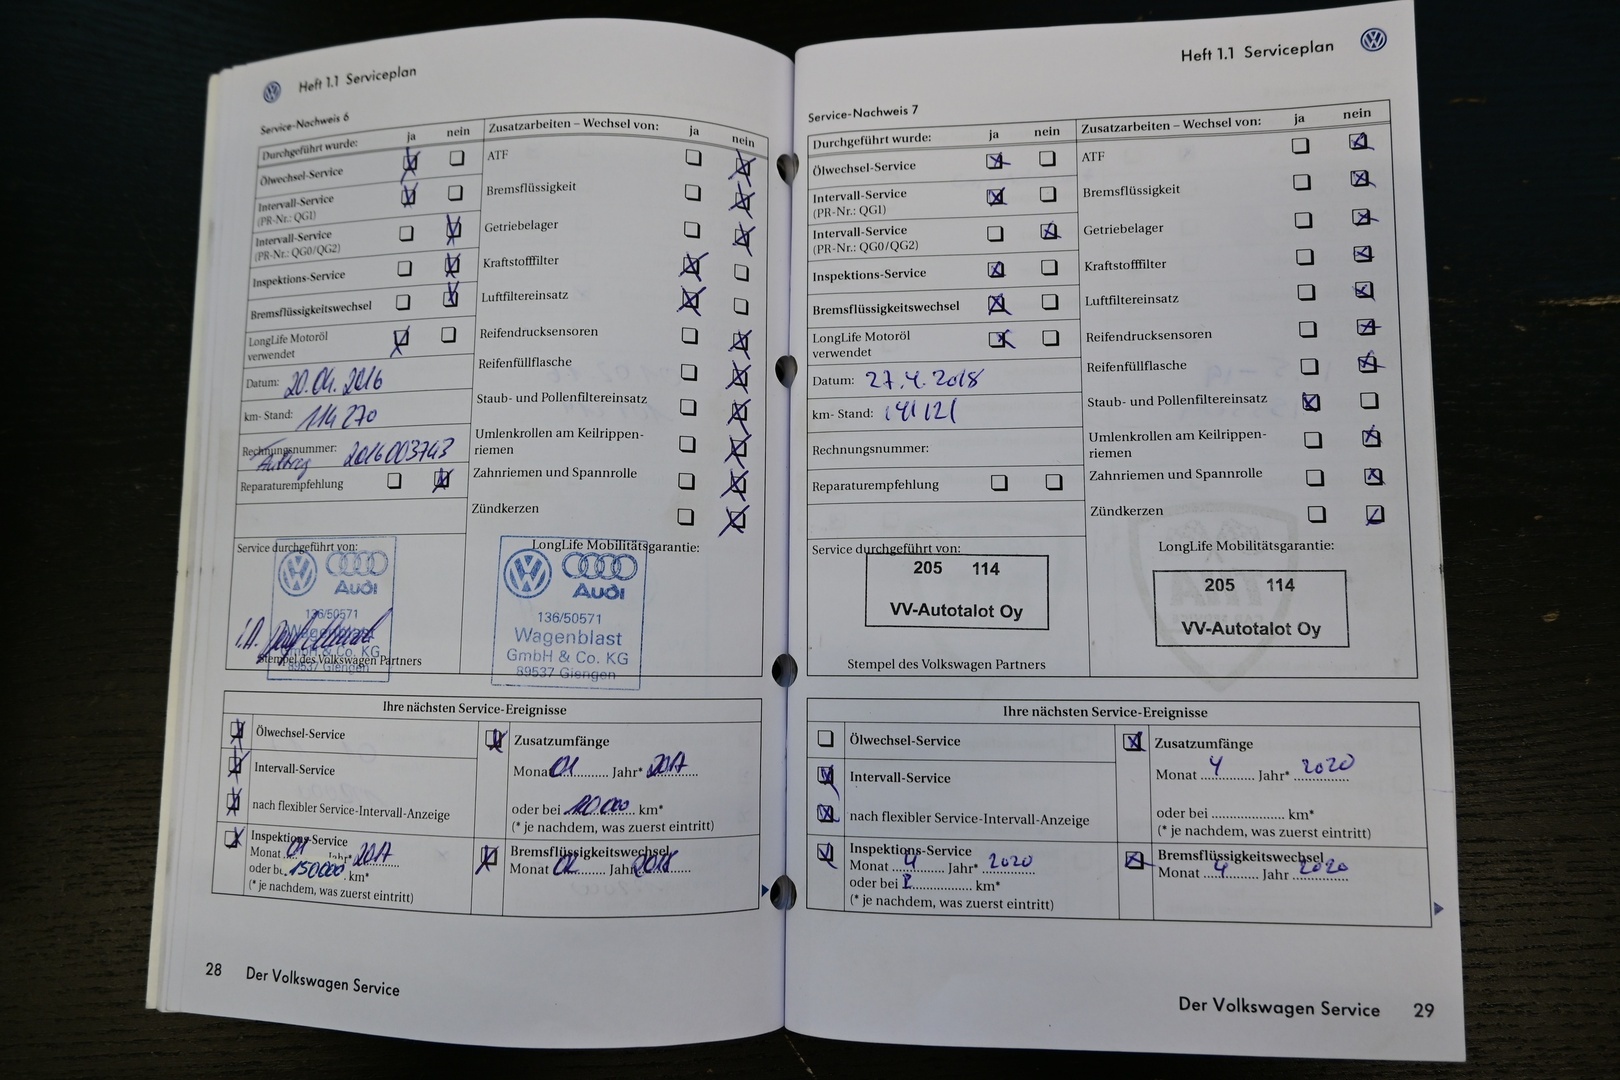 Heft 1.1 Serviceplan
Service-Nachweis 6
Durchgeführt wurde: ja nein
Ölwechsel-Service
Intervall-Service
(PR-Nr.: QG1)
Intervall-Service
(PR-Nr.: QG0/QG2)
Inspektions-Service
Bremsflüssigkeitswechsel
LongLife Motoröl
verwendet
Datum: 20.04.2016
km- Stand: 114 270
Rechnungsnummer: 2016003743
Auftrag
Reparaturempfehlung
Zusatzarbeiten – Wechsel von: ja nein
ATF
Bremsflüssigkeit
Getriebelager
Kraftstofffilter
Luftfiltereinsatz
Reifendrucksensoren
Reifenfüllflasche
Staub- und Pollenfiltereinsatz
Umlenkrollen am Keilrippen-
riemen
Zahnriemen und Spannrolle
Zündkerzen
Service durchgeführt von:
Audi
136/50571
Wagenblast
GmbH & Co. KG
89537 Giengen
i.A.
Stempel des Volkswagen Partners
LongLife Mobilitätsgarantie:
Audi
136/50571
Wagenblast
GmbH & Co. KG
89537 Giengen
Ihre nächsten Service-Ereignisse
Ölwechsel-Service
Intervall-Service
nach flexibler Service-Intervall-Anzeige
Inspektions-Service
Monat 01 Jahr* 2017
oder bei 150000 km*
(* je nachdem, was zuerst eintritt)
Zusatzumfänge
Monat 01 Jahr* 2017
oder bei 120000 km*
(* je nachdem, was zuerst eintritt)
Bremsflüssigkeitswechsel
Monat 01 Jahr 2018
28 Der Volkswagen Service
Heft 1.1 Serviceplan
Service-Nachweis 7
Durchgeführt wurde: ja nein
Ölwechsel-Service
Intervall-Service
(PR-Nr.: QG1)
Intervall-Service
(PR-Nr.: QG0/QG2)
Inspektions-Service
Bremsflüssigkeitswechsel
LongLife Motoröl
verwendet
Datum: 27.4.2018
km- Stand: 141121
Rechnungsnummer:
Reparaturempfehlung
Zusatzarbeiten – Wechsel von: ja nein
ATF
Bremsflüssigkeit
Getriebelager
Kraftstofffilter
Luftfiltereinsatz
Reifendrucksensoren
Reifenfüllflasche
Staub- und Pollenfiltereinsatz
Umlenkrollen am Keilrippen-
riemen
Zahnriemen und Spannrolle
Zündkerzen
Service durchgeführt von:
205 114
VV-Autotalot Oy
Stempel des Volkswagen Partners
LongLife Mobilitätsgarantie:
205 114
VV-Autotalot Oy
Ihre nächsten Service-Ereignisse
Ölwechsel-Service
Intervall-Service
nach flexibler Service-Intervall-Anzeige
Inspektions-Service
Monat 4 Jahr* 2020
oder bei km*
(* je nachdem, was zuerst eintritt)
Zusatzumfänge
Monat 4 Jahr* 2020
oder bei km*
(* je nachdem, was zuerst eintritt)
Bremsflüssigkeitswechsel
Monat 4 Jahr 2020
Der Volkswagen Service 29